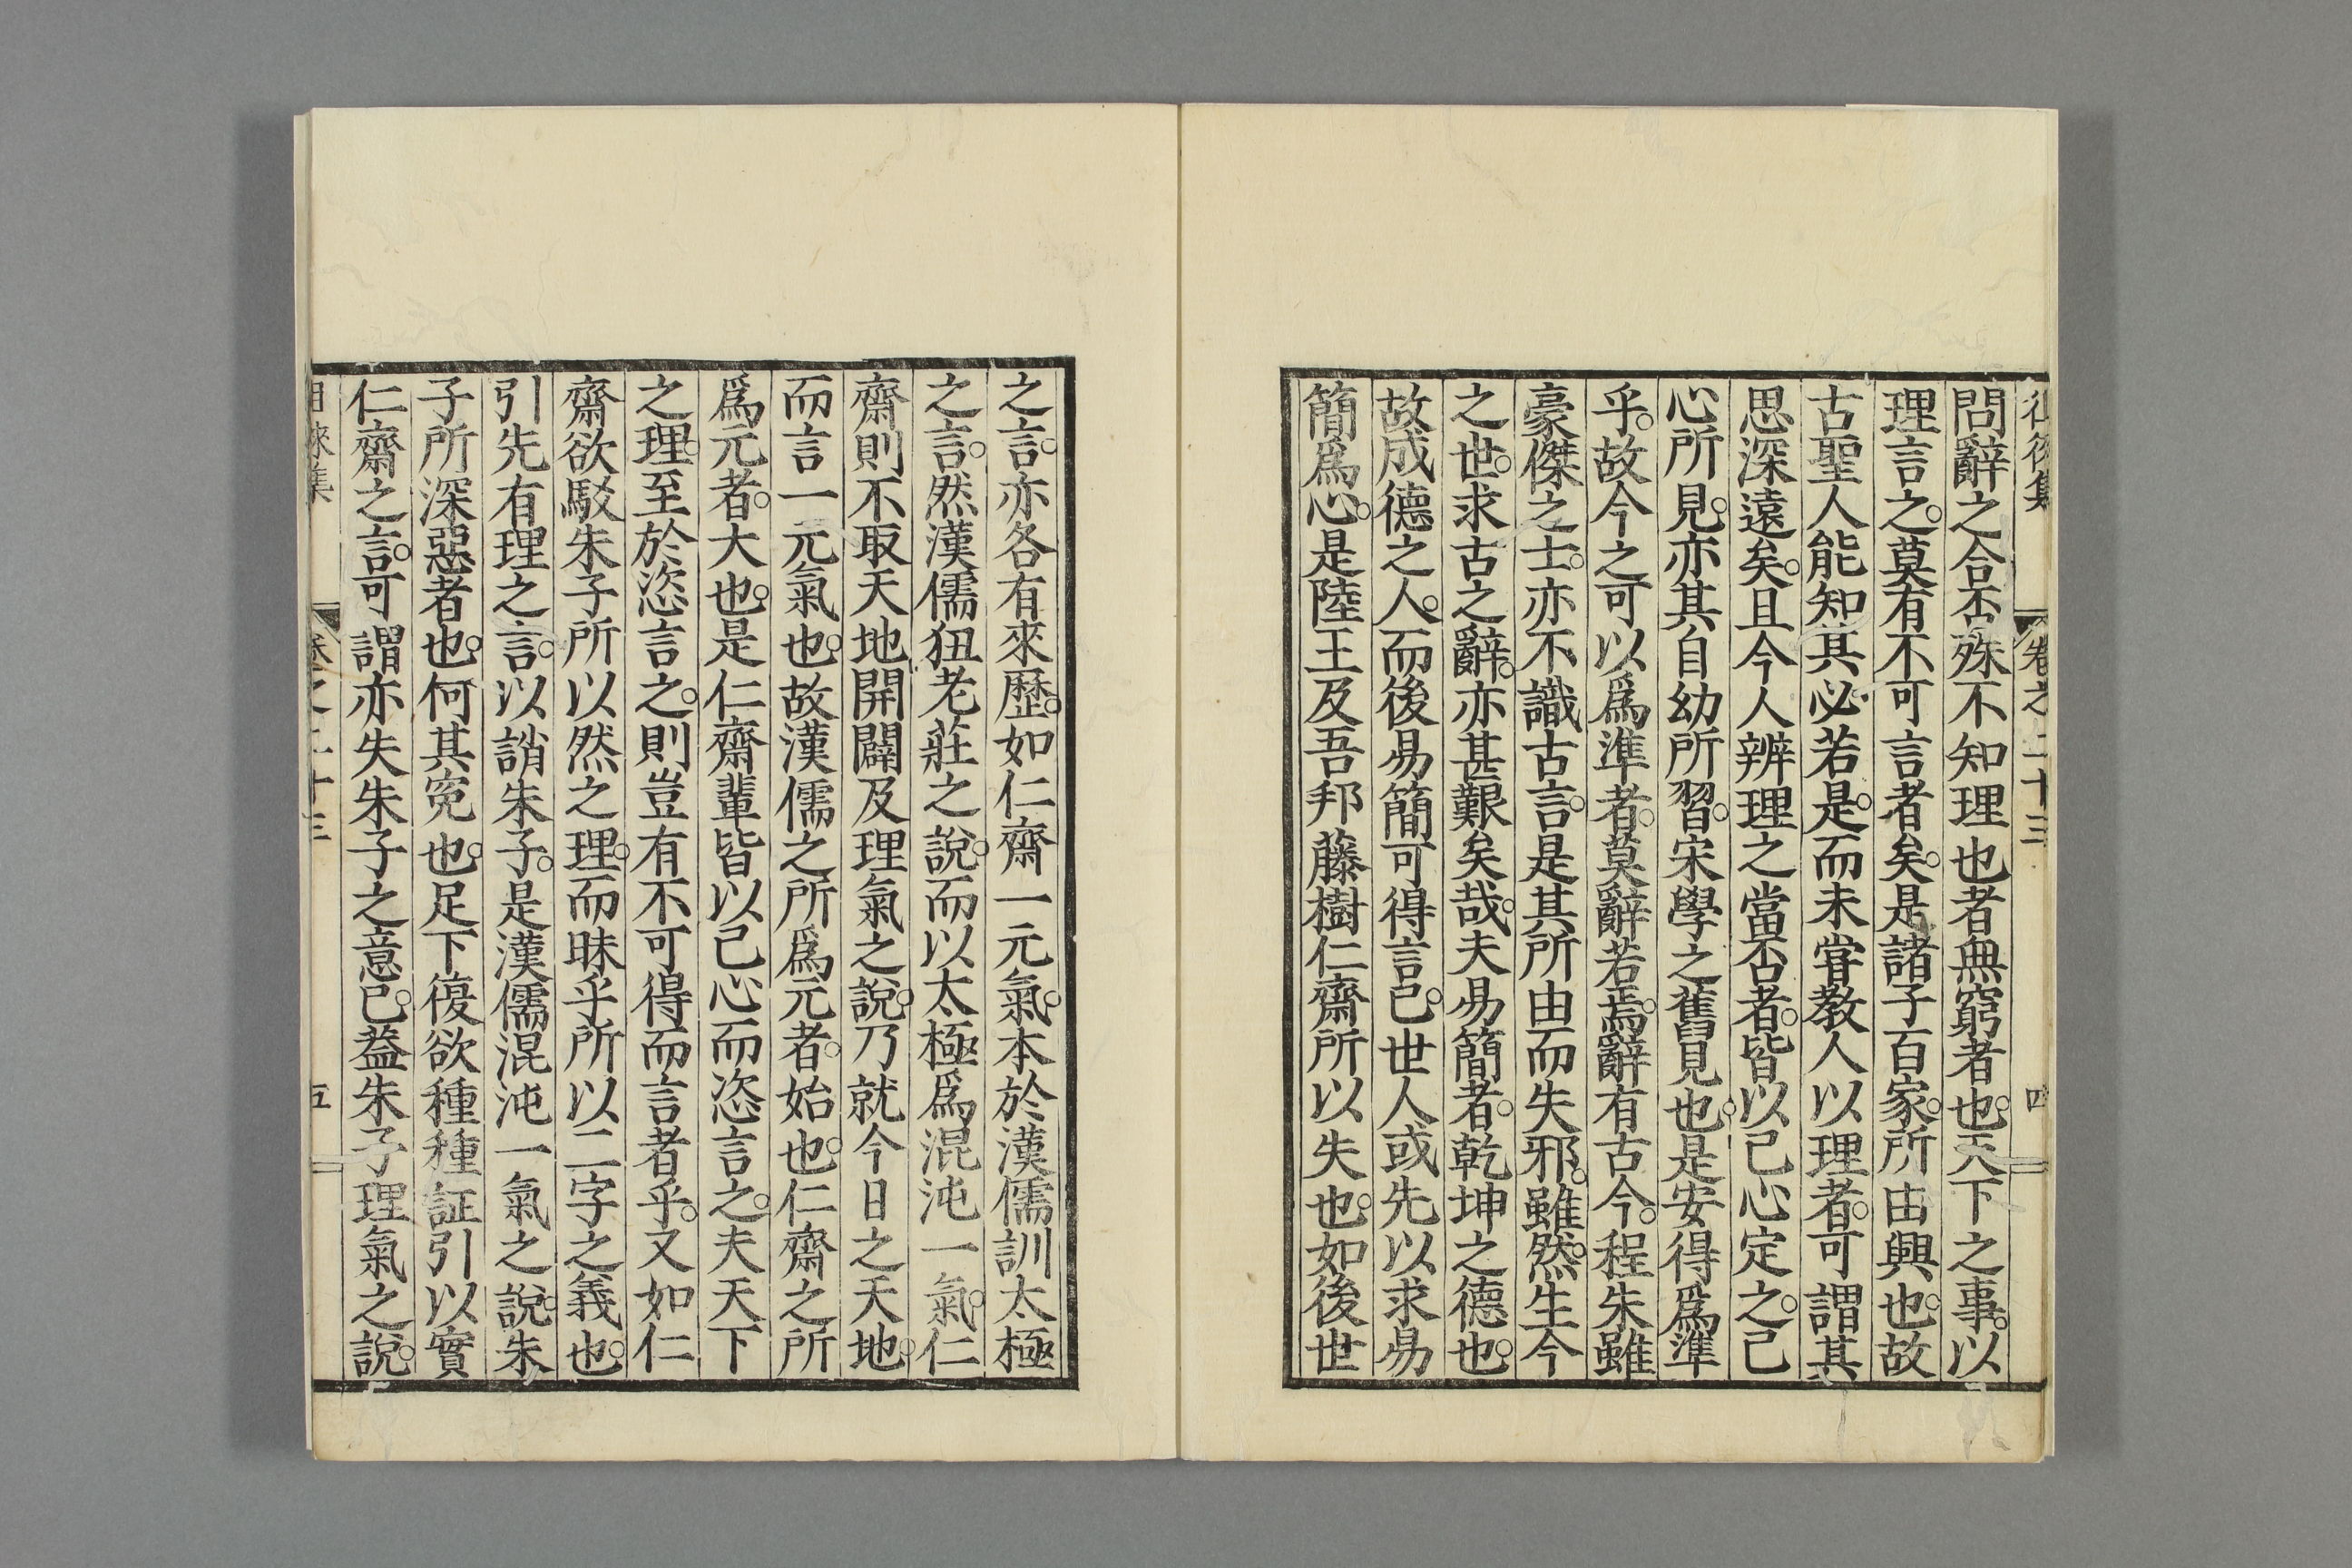 徂徠集 卷之二十三 四
問辭之合否殊不知理也者無窮者也。天下之事。以
理言之。莫有不可言者矣。是諸子百家。所由興也。故
古聖人能知其必若是。而未甞教人以理者。可謂其
思深遠矣。且今人辨理之當否者。皆以己心定之。己
心所見。亦其自幼所習。宋學之舊見也。是安得爲準
乎。故今之可以爲準者。莫辭若焉。辭有古今。程朱雖
豪傑之士。亦不識古言。是其所由而失邪。雖然。生今
之世。求古之辭。亦甚艱矣哉。夫易簡者。乾坤之德也。
故成德之人。而後易簡可得言已。世人或先以求易
簡爲心。是陸王及吾邦藤樹仁齋所以失也。如後世
之言。亦各有來歷。如仁齋一元氣。本於漢儒訓太極
之言。然漢儒狃老莊之說。而以太極爲混沌一氣。仁
齋則不取天地開闢及理氣之說。乃就今日之天地。
而言一元氣也。故漢儒之所爲元者。始也。仁齋之所
爲元者。大也。是仁齋輩皆以己心而恣言之。夫天下
之理。至於恣言之。則豈有不可得而言者乎。又如仁
齋欲駁朱子所以然之理。而昧乎所以二字之義也。
引先有理之言。以誚朱子。是漢儒混沌一氣之說。朱
子所深惡者也。何其寃也。足下復欲種種証引以實
仁齋之言。可謂亦失朱子之意已。葢朱子理氣之說。
徂徠集 卷之二十三 五